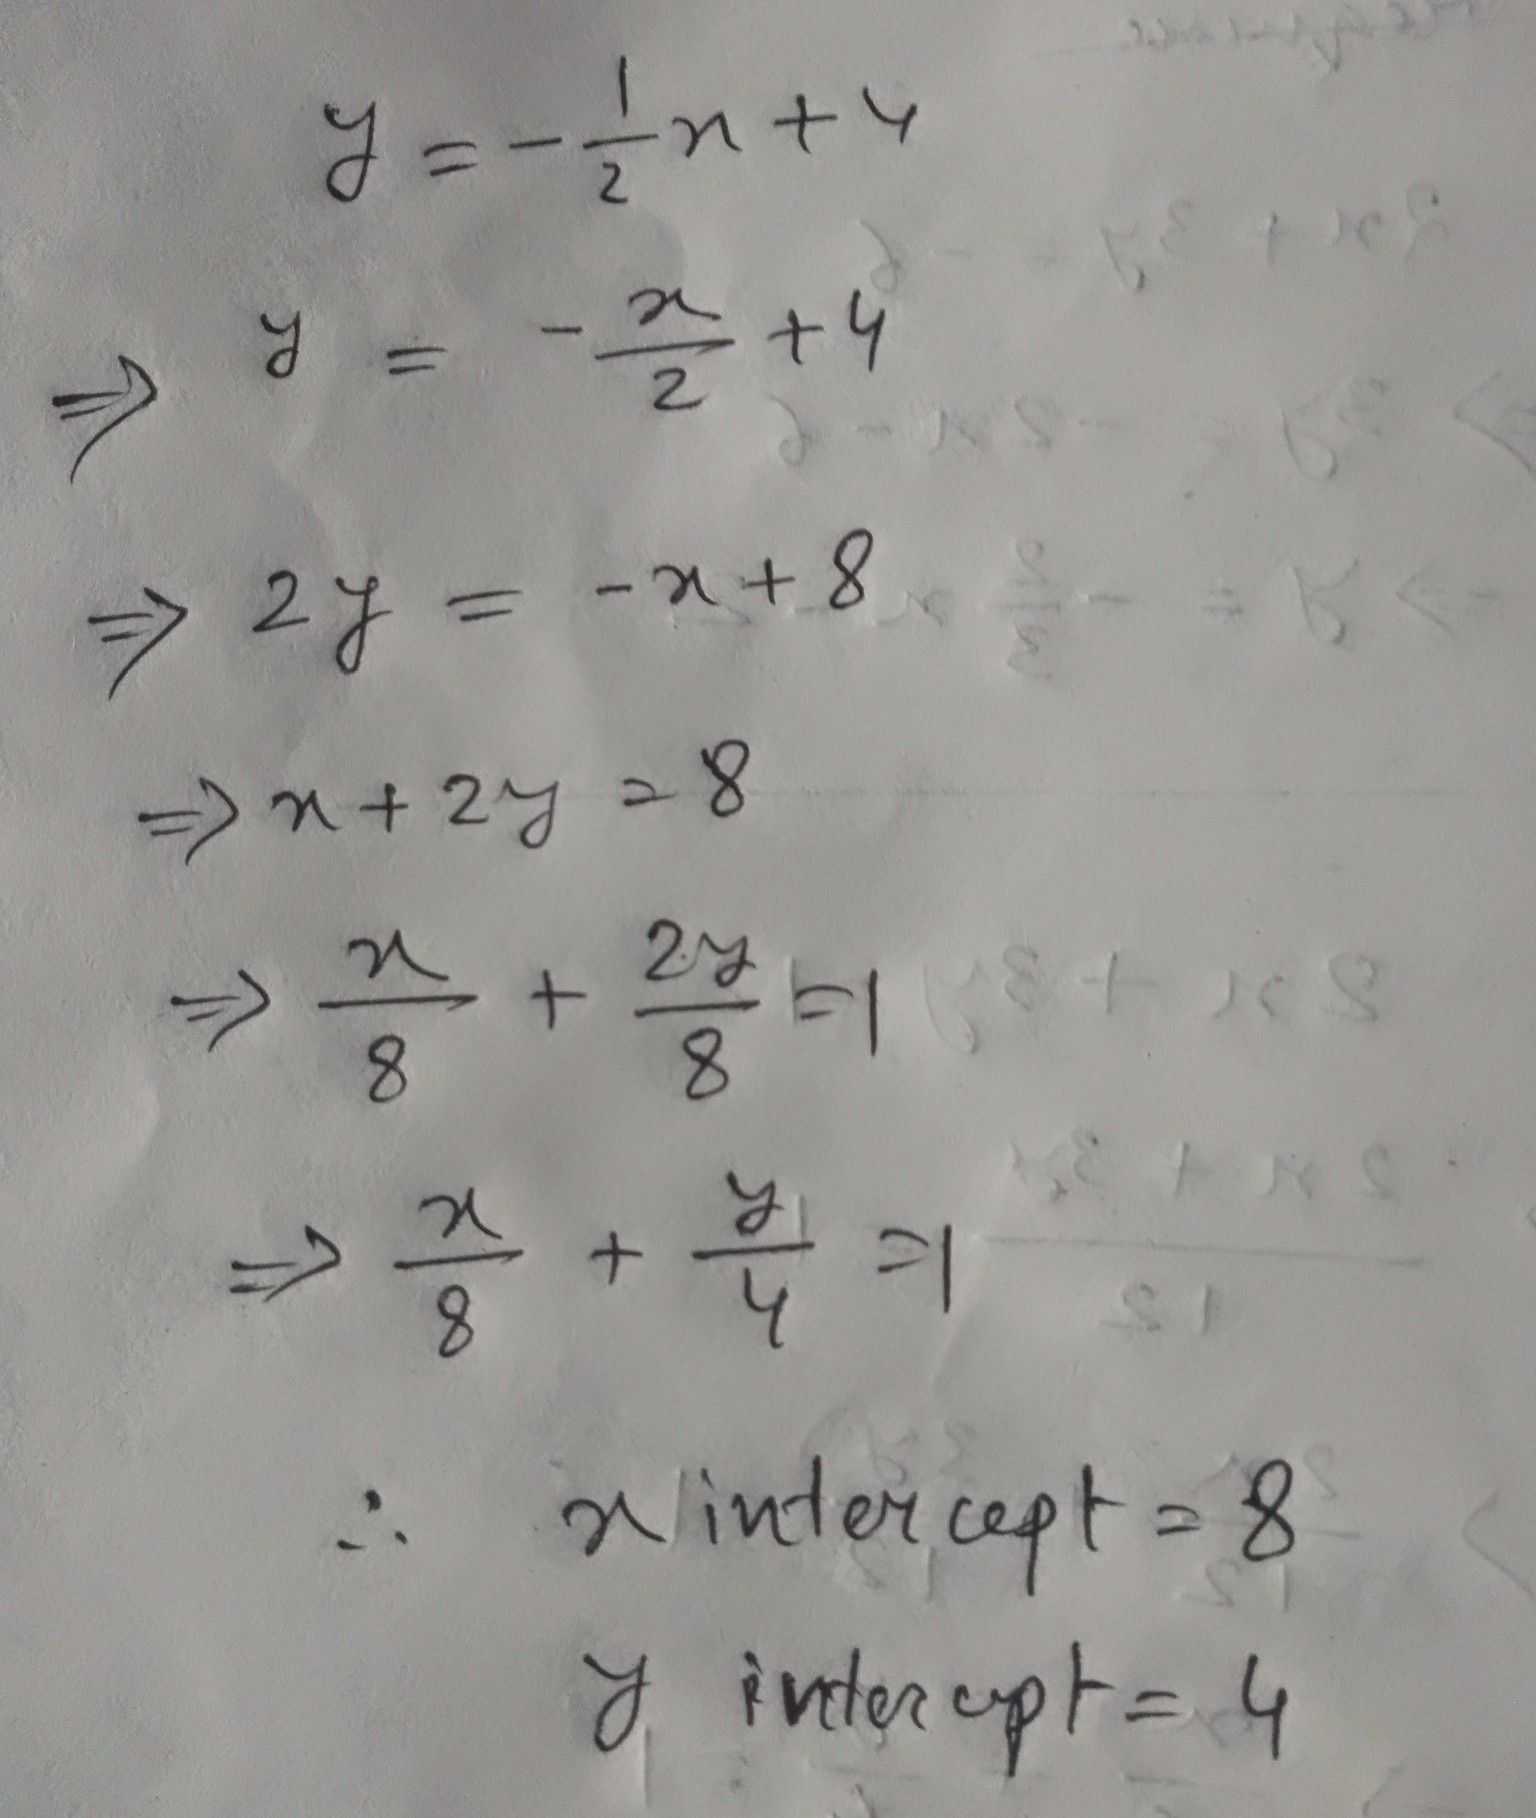 y = -1/2 x + 4
⇒ y = -x/2 + 4
⇒ 2y = -x + 8
⇒ x + 2y = 8
⇒ x/8 + 2y/8 = 1
⇒ x/8 + y/4 = 1
∴ x intercept = 8
y intercept = 4